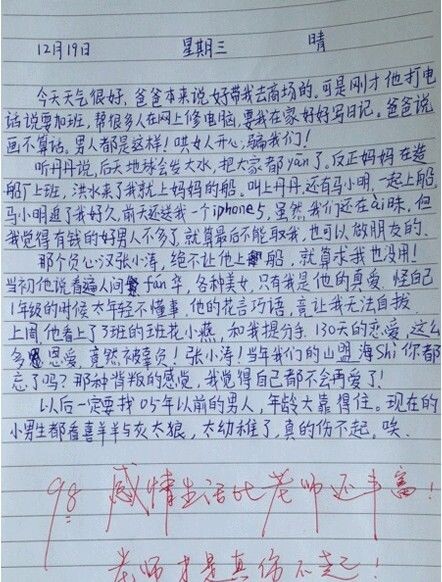 12月19日 星期三 晴
今天天气很好,爸爸本来说好带我去商场的。可是刚才他打电
话说要加班,帮很多人在网上修电脑,要我在家好好写日记。爸爸说
画不算话,男人都是这样!哄女人开心,骗我们!
听丹丹说,后天地球会发大水,把大家都yān了。反正妈妈在造
船厂上班,洪水来了我就上妈妈的船。叫上丹丹,还有马小明,一起上船
马小明追了我好久,前天还送我一个iphone5,虽然我们还在ài昧,但
我觉得有钱的好男人不多了,就算最后不能取我,也可以做朋友的。
那个负心汉张小涛,绝不让他上船,就算求我也没用!
当初他说看遍人间fán华,各种美女,只有我是他的真爱。怪自己
1年级的时候太年轻不懂事。他的花言巧语,竟让我无法自拔。
上周,他看上了3班的班花小燕,和我提分手。130天的恋爱,这么
多恩爱,竟然被辜负!张小涛!当年我们的山盟海Shì你都
忘了吗?那种背叛的感觉,我觉得自己都不会再爱了!
以后一定要找05年以前的男人,年龄大靠得住。现在的
小男生都看喜羊羊与灰太狼,太幼稚了,真的伤不起,唉。
98 感情生活比老师还丰富!
老师才是真伤不起!